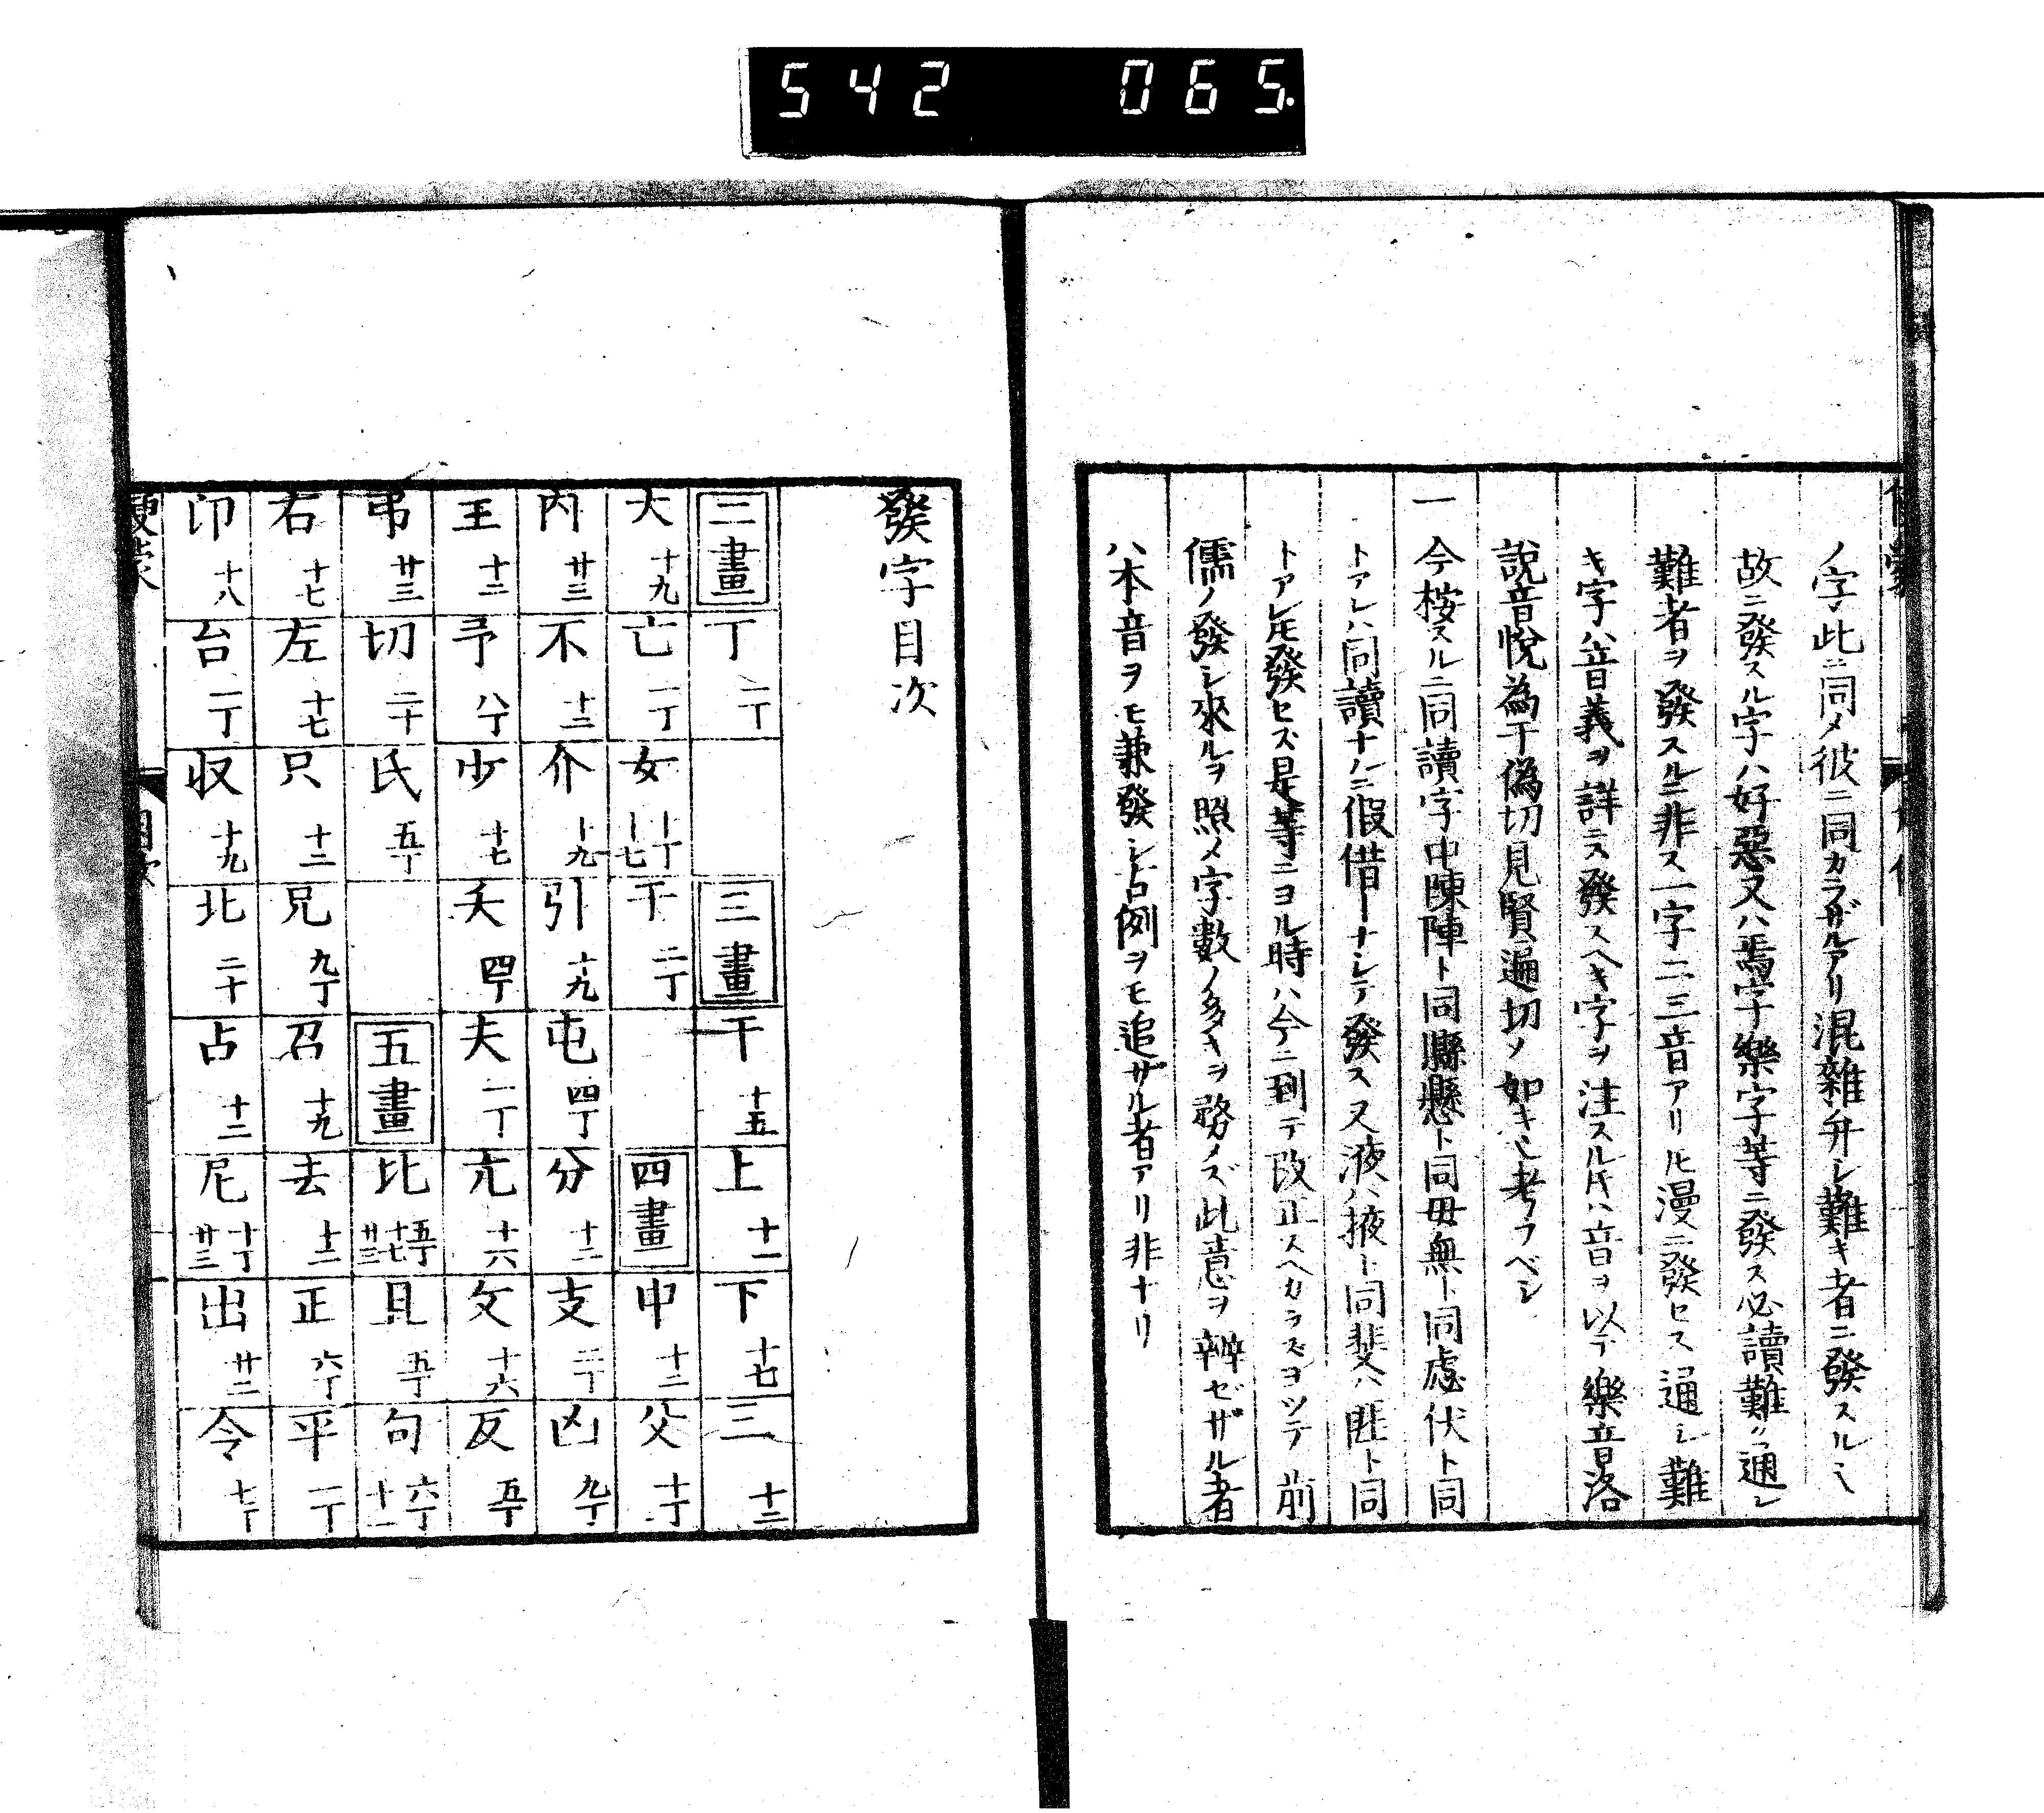 542 065.
ノ字ハ此ニ同メ彼ニ同カラザルアリ混雜弁シ難キ者ニ發スルミ
故ニ發スル字ハ好惡又ハ焉字樂字等ニ發ス必讀難ク通シ
難者ヲ發スルニ非ス一字ニ二三音アリ𪜈漫ニ發セス通シ難
キ字ハ音義ヲ詳ニス發スヘキ字ヲ注スル𪜈ハ音ヲ以テ樂音洛
說音悅為于偽切見賢遍切ノ如キミ考フベシ
一 今按スルニ同讀字中陳陣ト同縣懸ト同毋無ト同處伏ト同
トアレハ同讀ナルニ假借ーナシテ發ス又液ハ掖ト同斐ハ匪ト同
トアレ𪜈發セズ是等ニヨル時ハ今ニ到テ改正スヘカラズヨツテ前
儒ノ發シ來ルヲ照メ字數ノ多キヲ務メズ此意ヲ辨ゼザル者
ハ本音ヲモ兼發シ占例ヲモ追ザル者アリ非ナリ
發字目次
二畫 丁 二丁 三畫 干 十五 上 十一 下 十七 三 十二
大 十九 亡 一丁 女 十丁 十七 于 二丁 四畫 中 十二 父 十丁
內 廿三 不 十二 介 十九 引 十九 屯 四丁 分 十二 支 二丁 凶 九丁
王 十二 予 八丁 少 十七 夭 四丁 夫 一丁 亢 十六 文 十六 反 五丁
弔 廿三 切 二十 氏 五丁 五畫 比 五丁 十七 廿三 且 五丁 句 六丁 十一
右 十七 左 十七 只 十二 兄 九丁 召 十九 去 十二 正 六丁 平 一丁
印 十八 台 一丁 收 十九 北 二十 占 十二 尼 十丁 廿三 出 廿二 令 七丁
目次